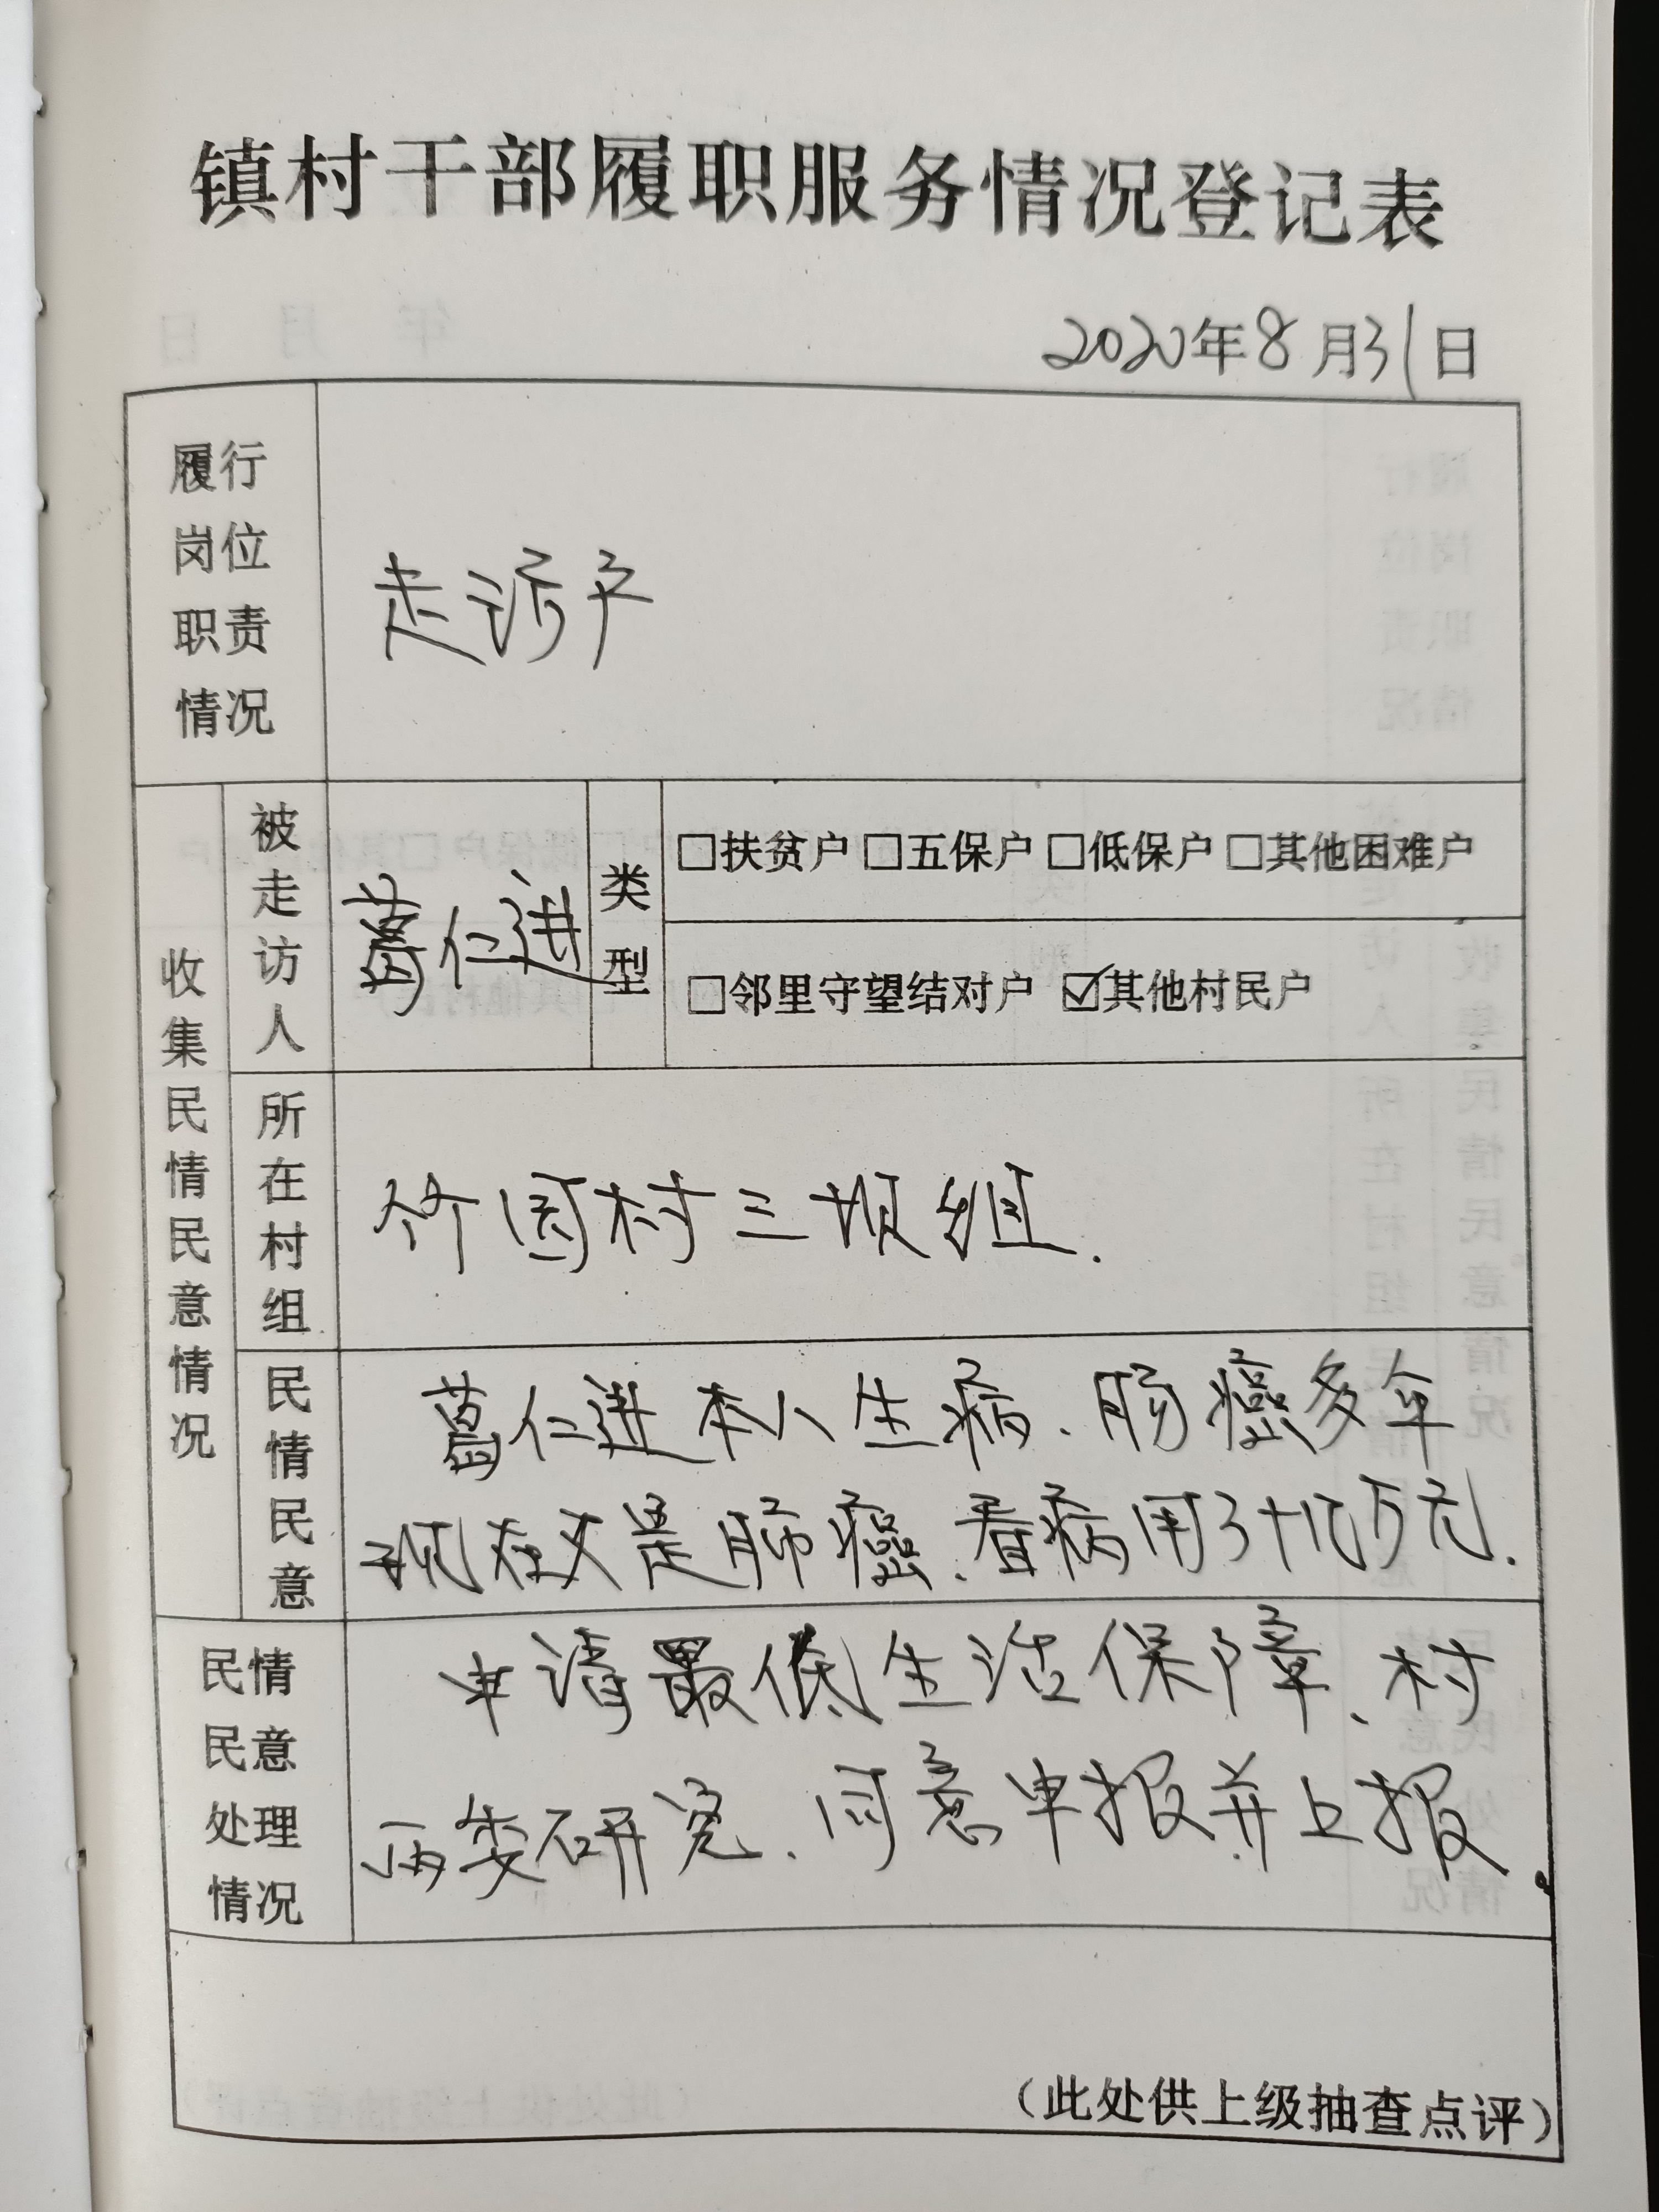 镇村干部履职服务情况登记表
2020年8月31日
履行
岗位
职责
情况
走访户
收集民情民意情况
被走访人
葛仁进
类型
□扶贫户 □五保户 □低保户 □其他困难户
□邻里守望结对户 ☑其他村民户
所在村组
竹园村三坝组.
民情民意
葛仁进本人生病、肠癌多年
现在又是肺癌、看病用了十几万元.
民情
民意
处理
情况
申请最低生活保障、村
两委研究、同意申报并上报.
（此处供上级抽查点评）